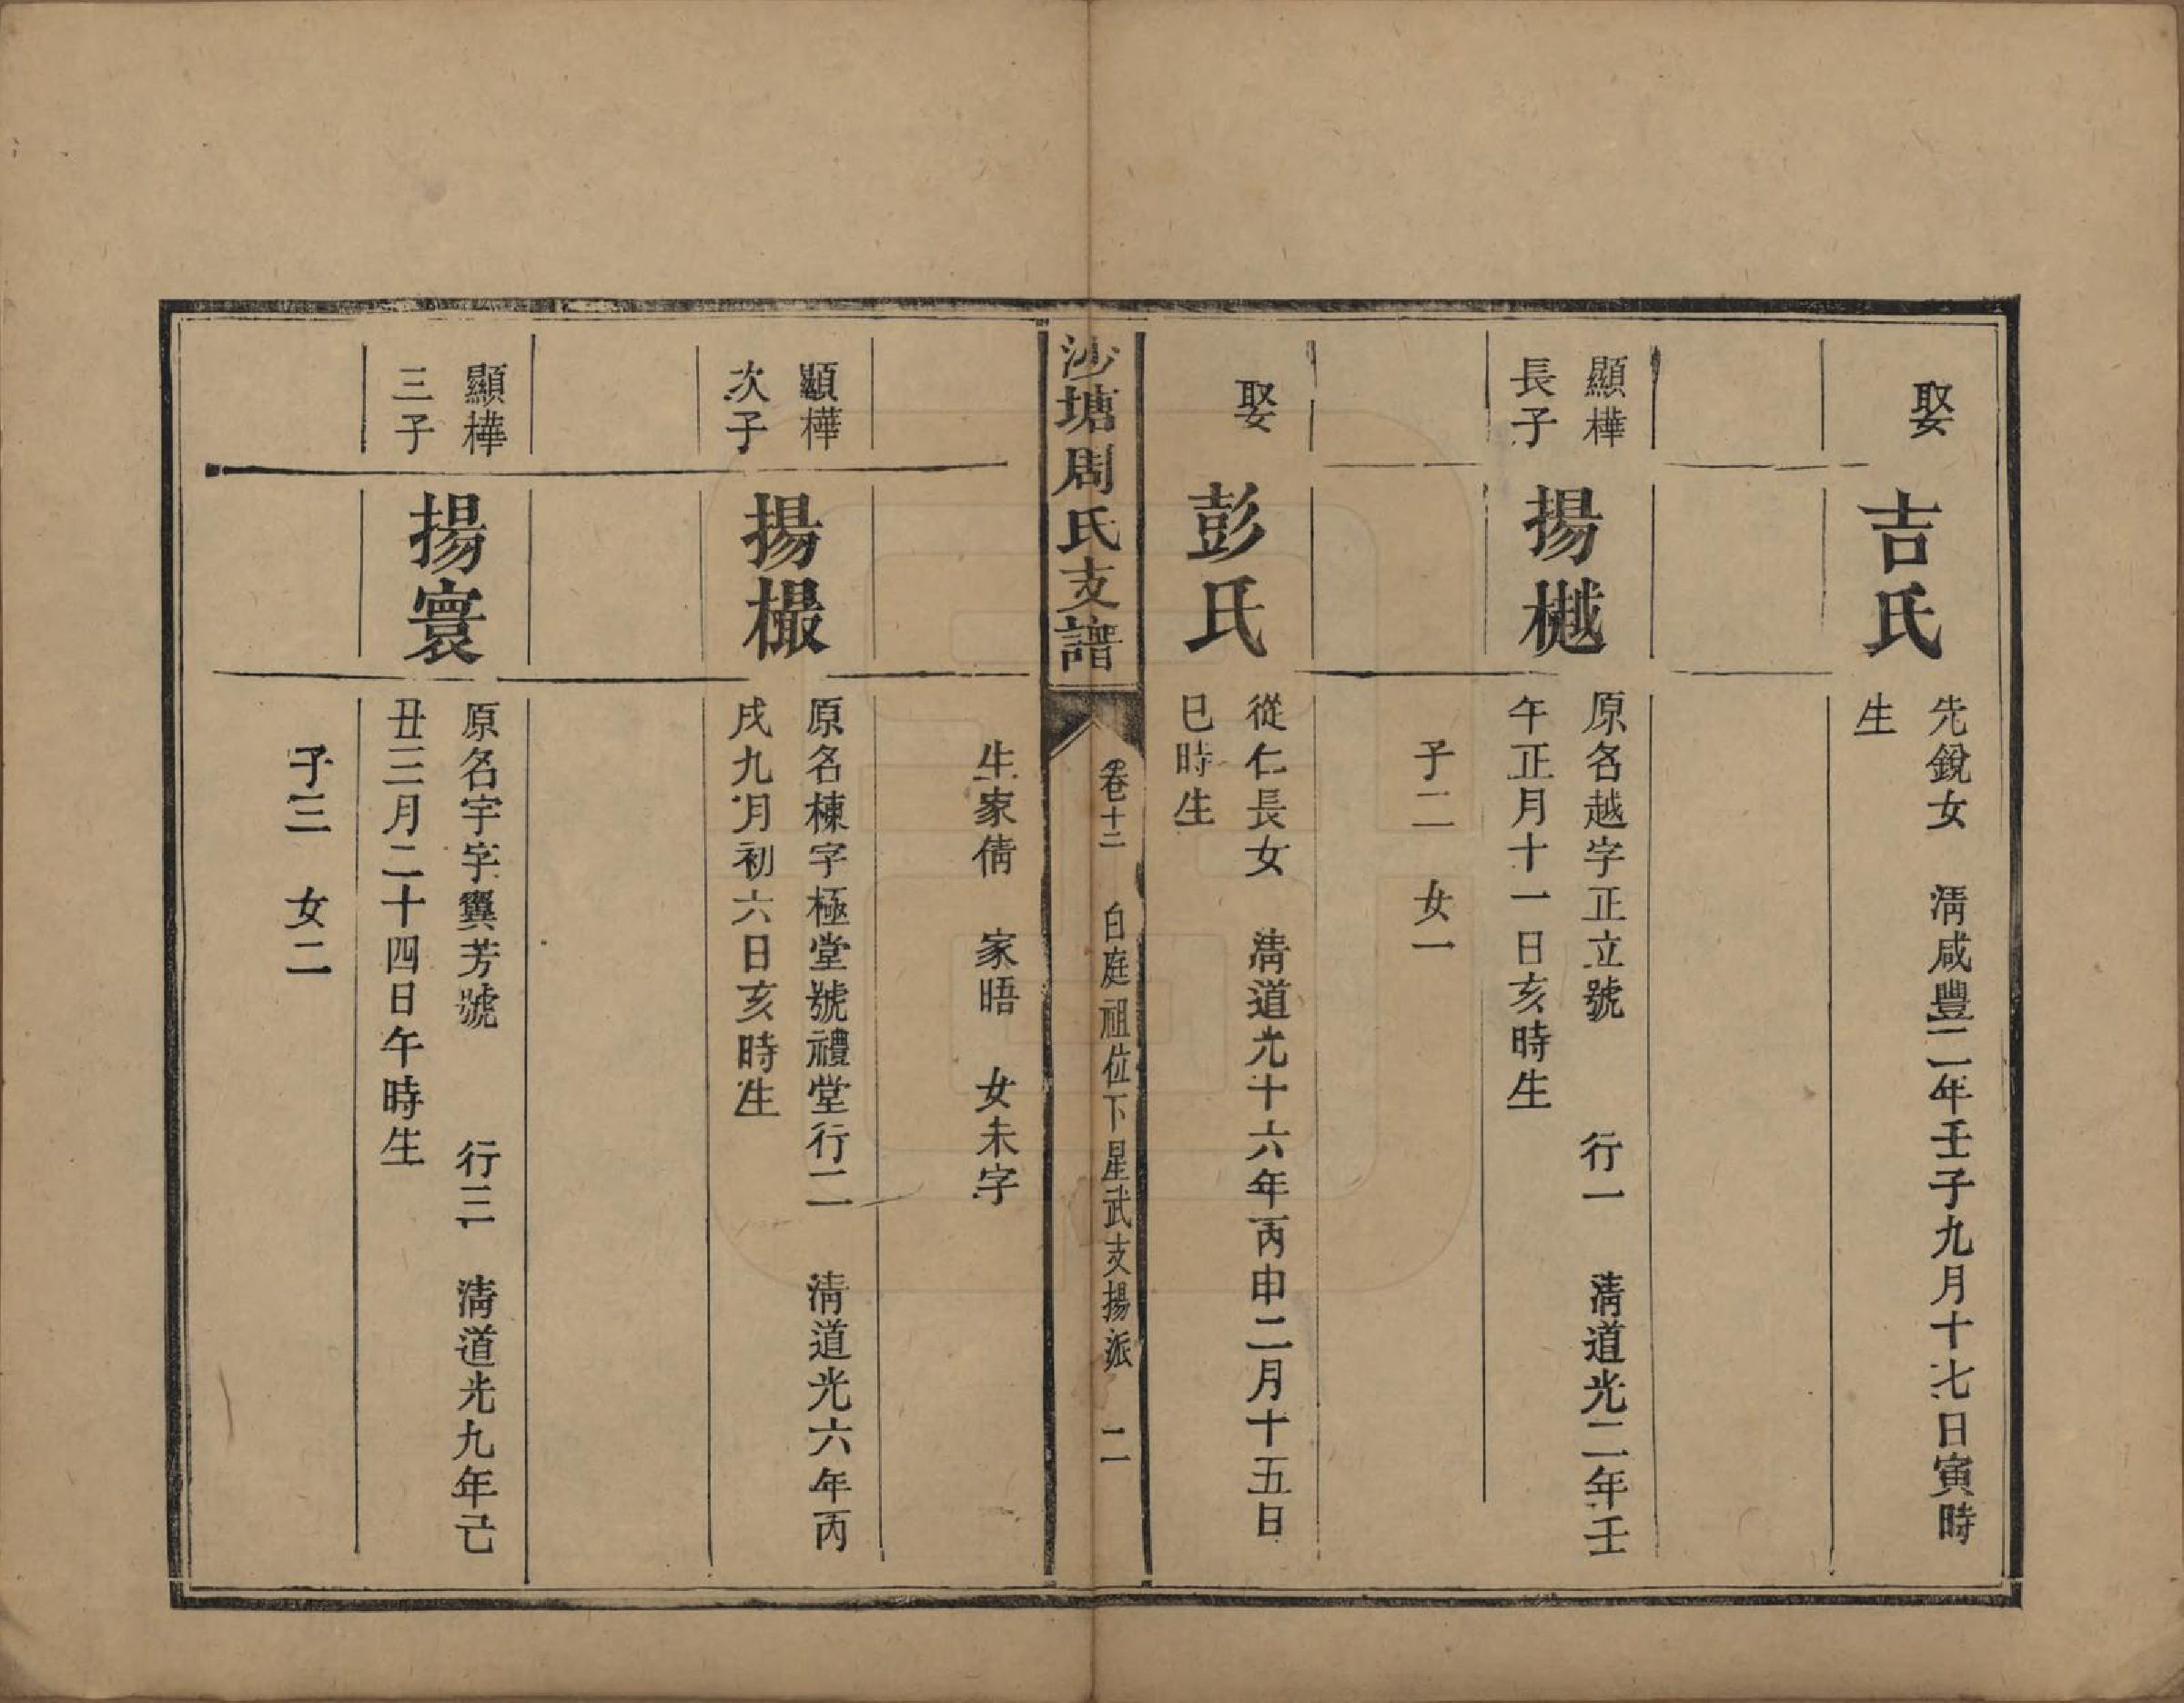 娶
吉氏
先銳女　淸咸豐二年壬子九月十七日寅時
生
顯樺
長子
揚樾
原名越字正立號　　行一　淸道光二年壬
午正月十一日亥時生
子二　女一
娶
彭氏
從仁長女　淸道光十六年丙申二月十五日
巳時生
沙塘周氏支譜
卷十二　白庭祖位下星武支揚派　二
生家倩　家晤　女未字
顯樺
次子
揚樶
原名棟字極堂號禮堂行二　淸道光六年丙
戌九月初六日亥時生
顯樺
三子
揚寰
原名宇字翼芳號　　行三　淸道光九年己
丑三月二十四日午時生
子三　女二